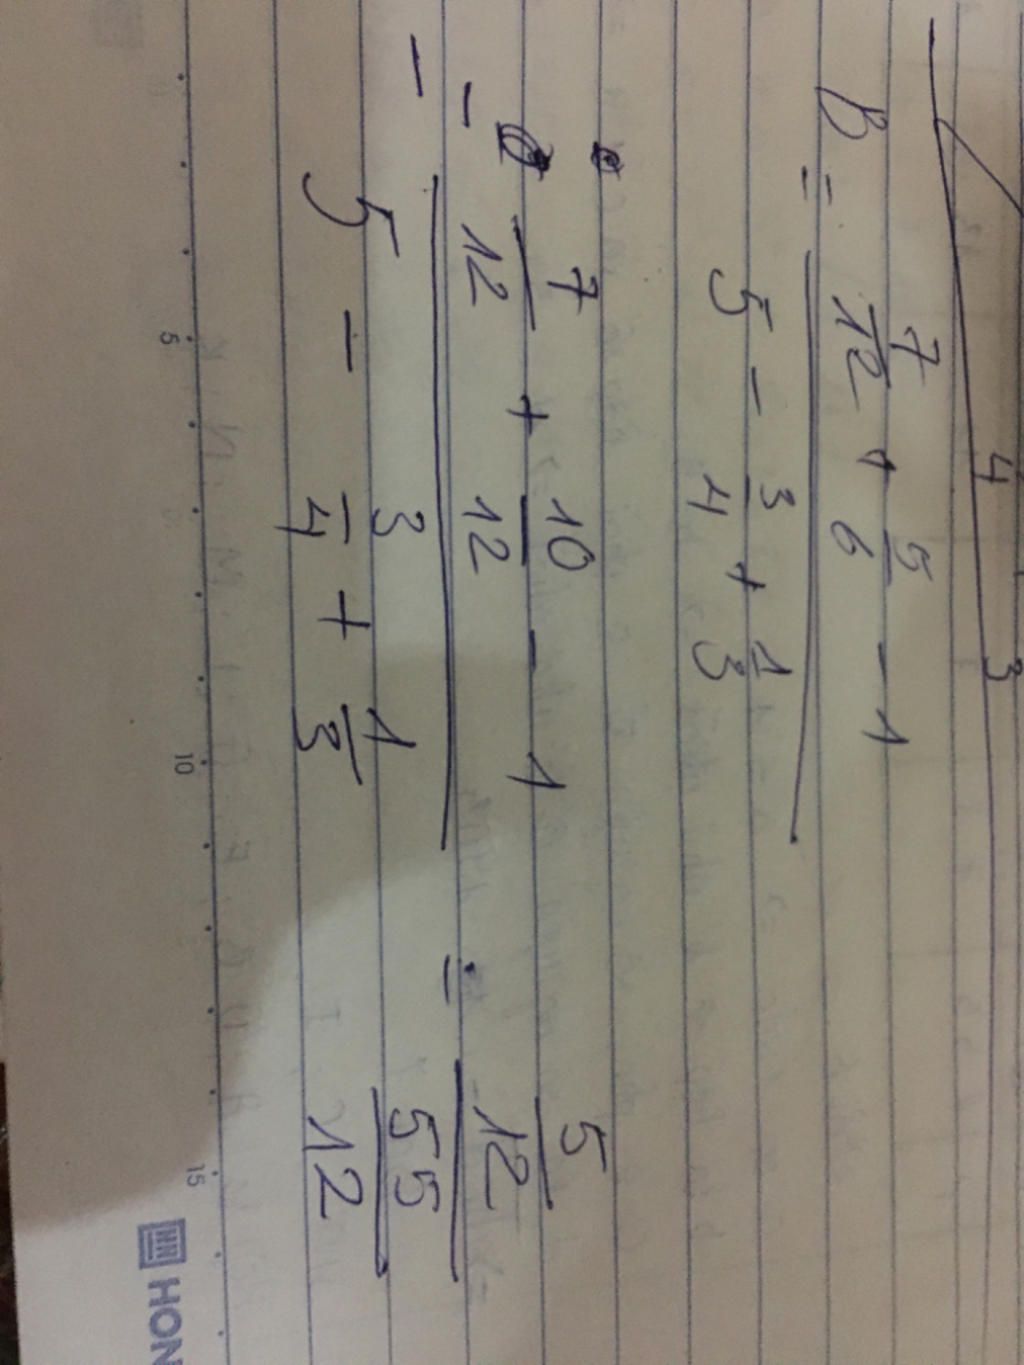 4 3
B = 7/12 + 5/6 - 1
5 - 3/4 + 1/3
= 7/12 + 10/12 - 1 = 5/12
5 - 3/4 + 1/3 55/12
5 10 15
HON